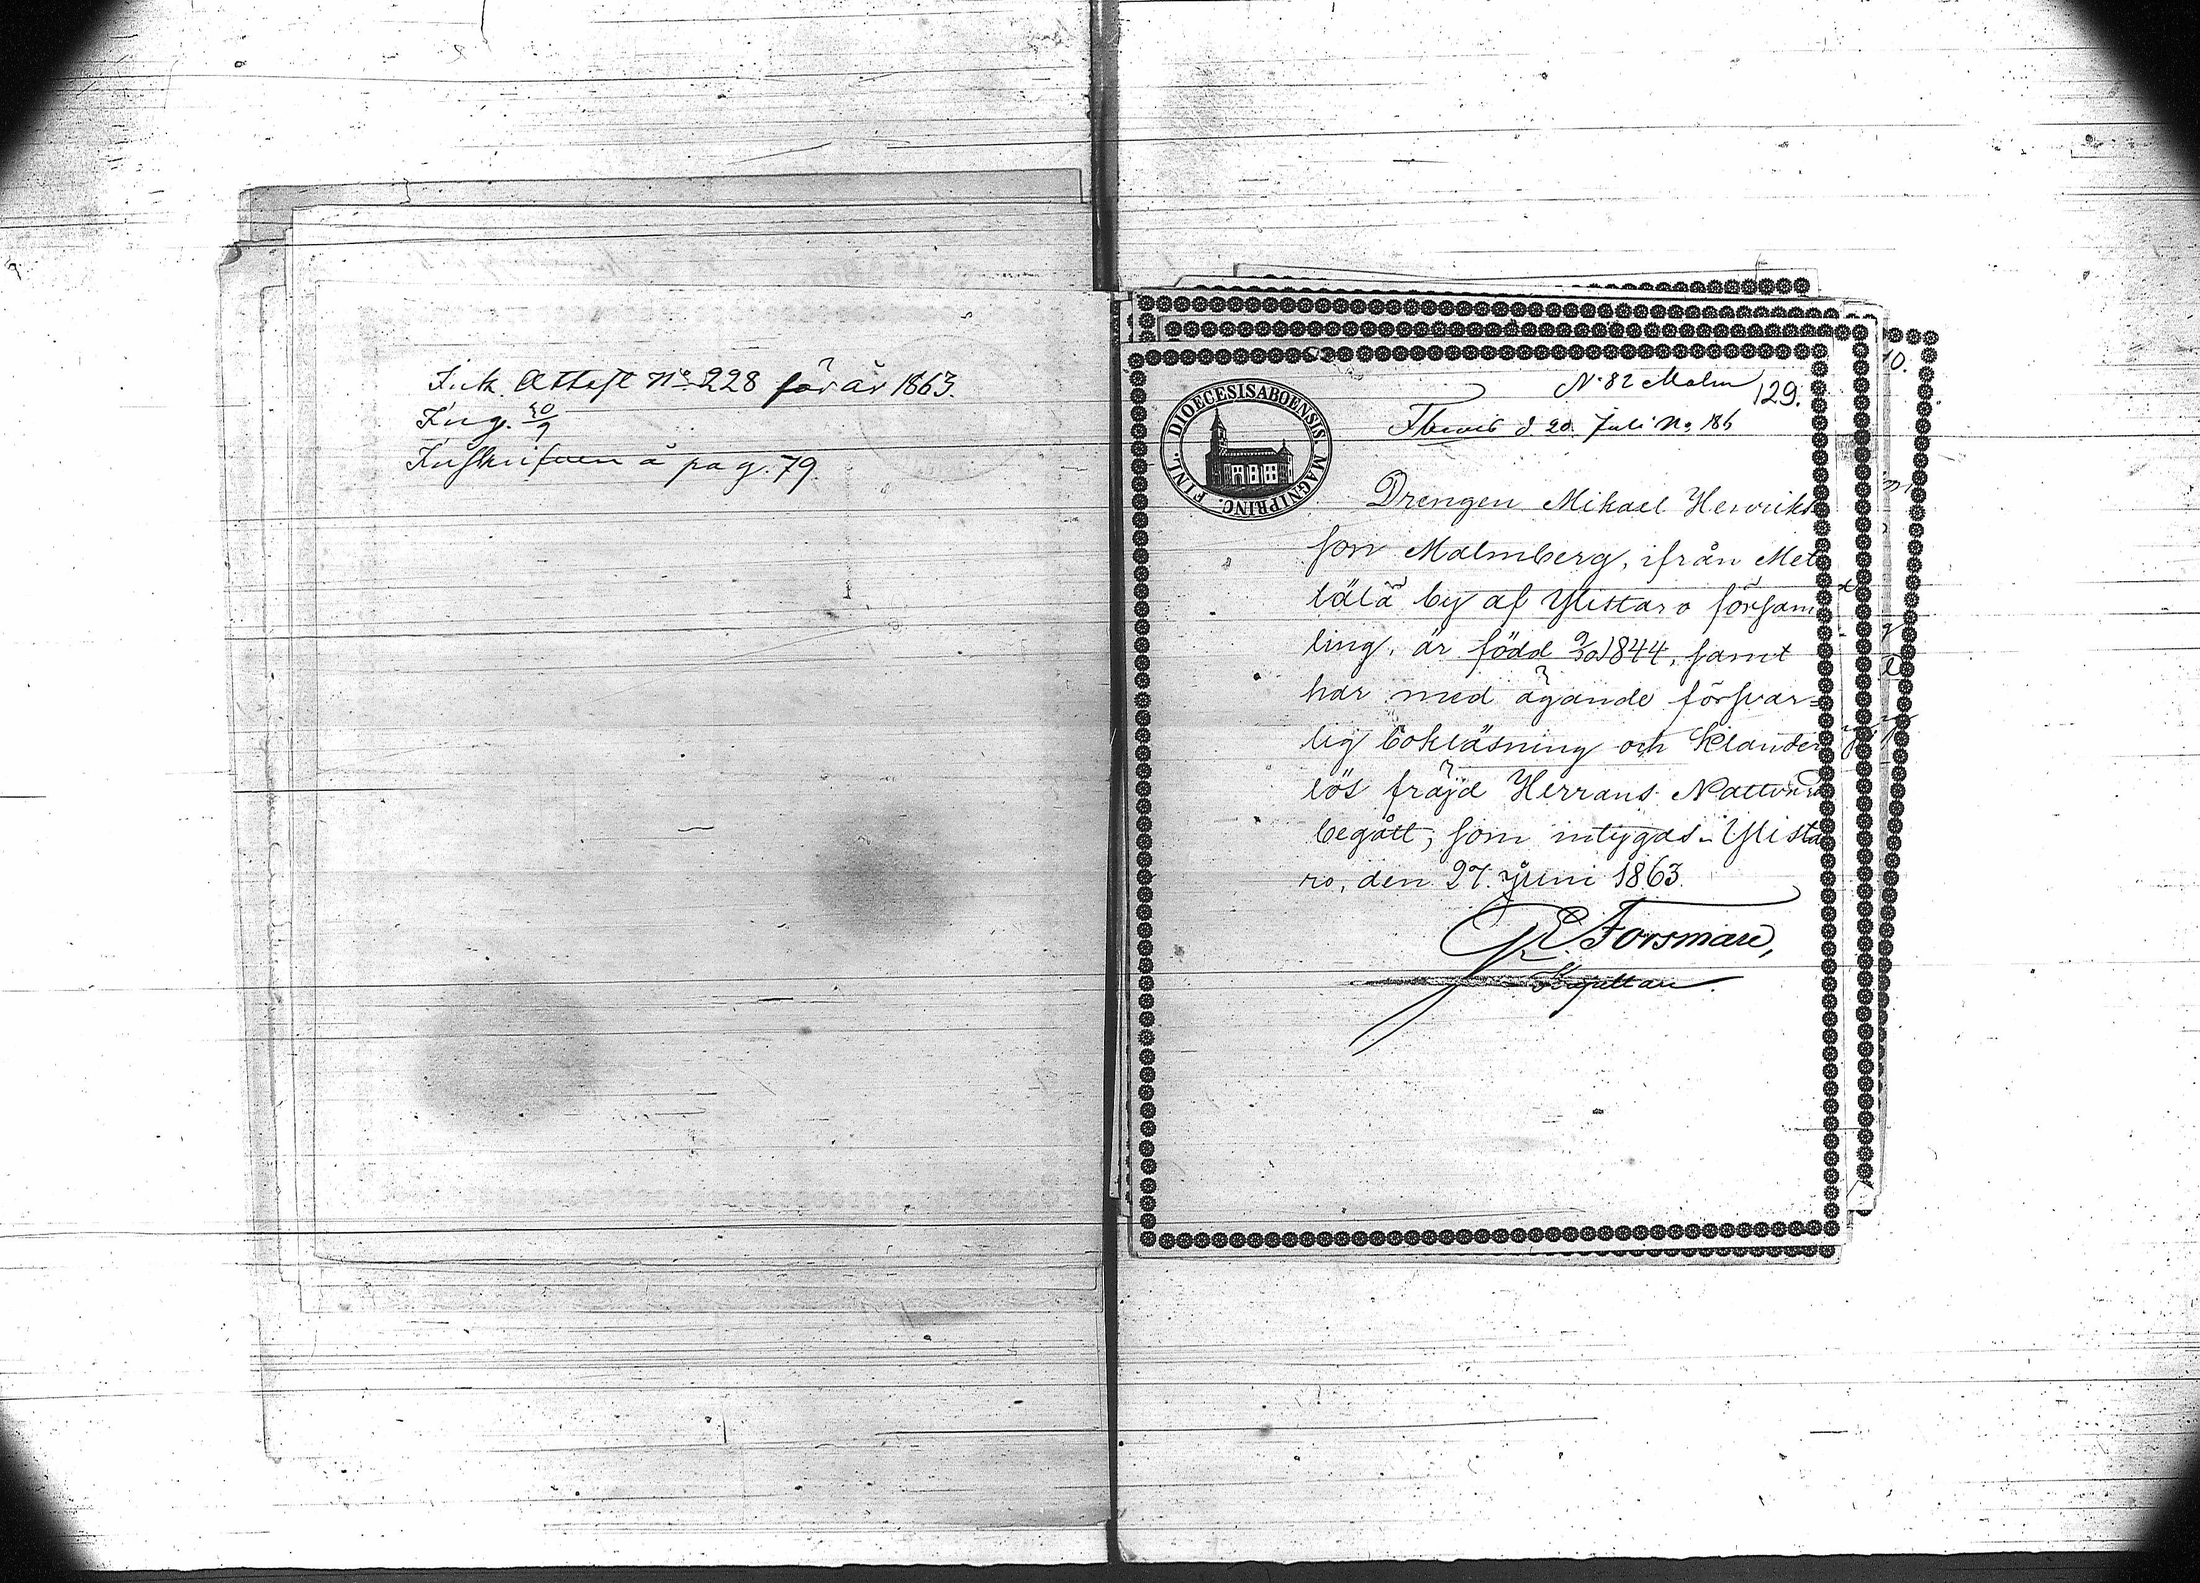 Ink. Attest No 228 för år 1863.
Ing. 20/9
Inskrifven å pag. 79.
N. 82 Malm
129.
d. 20. Juli No 186
DIOECESISABOENSIS. MAGNIPRINC. FINL.
Drengen Mikael Henriks
son Malmberg, ifrån Met
tälä by af Ylistaro församl
ling, är född 1844, samt
har med ägande försvar=
lig bokläsning och klander
lös fräjd Herrans Nattvard
begått; som intygas. Ylista
ro, den 27. Juni 1863.
Forsman,